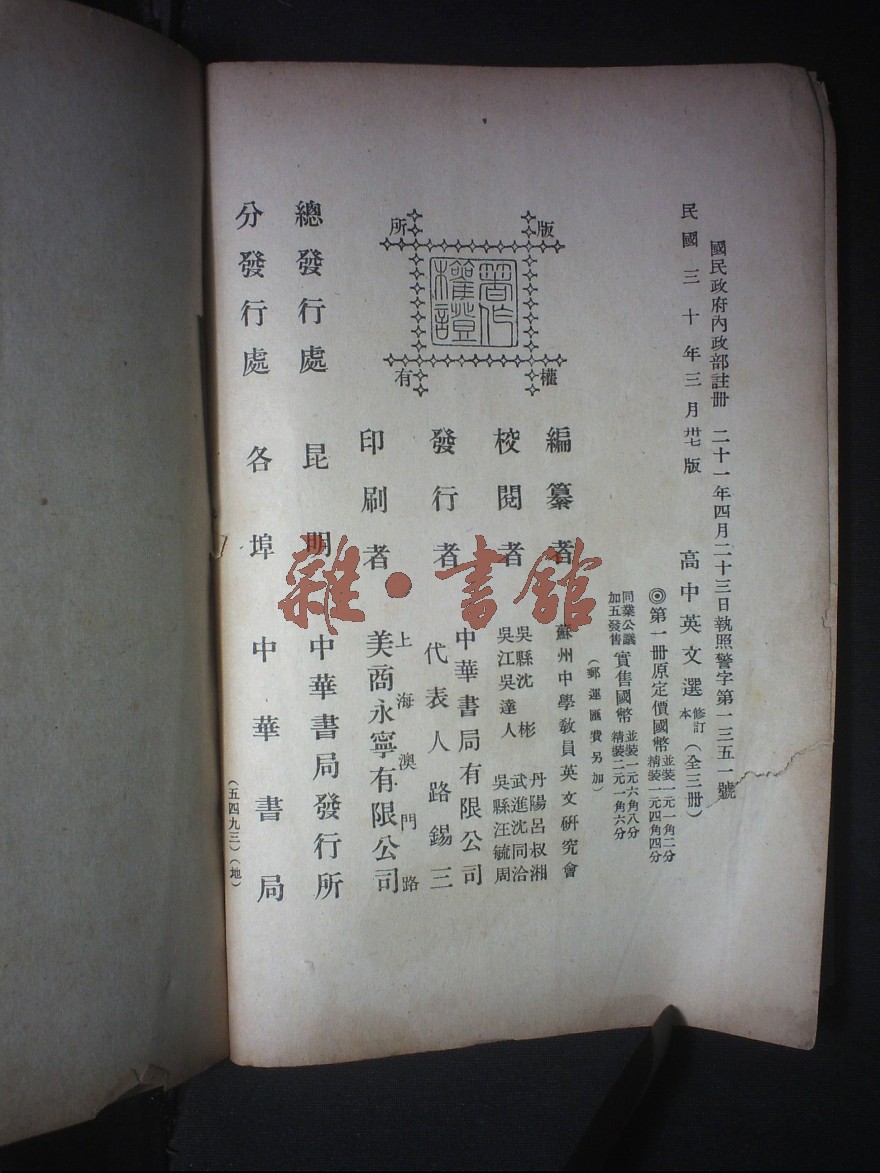 國民政府內政部註冊 二十一年四月二十三日執照警字第一三五一號
民國三十年三月卅七版
高中英文選 修訂本 (全三冊)
◎第一冊原定價國幣 並裝一元一角二分 精裝一元四角四分
同業公議加五發售 實售國幣 並裝一元六角八分 精裝二元一角六分
(郵運匯費另加)
版權所有
著作權證
編纂者 蘇州中學教員英文研究會
校閱者 吳縣沈彬 丹陽呂叔湘
吳江吳達人 武進沈同洽
吳縣汪毓周
發行者 中華書局有限公司
代表人路錫三
印刷者 上海澳門路
美商永寧有限公司
總發行處 昆明 中華書局發行所
分發行處 各埠 中華書局
(五四九三)(地)
雜·書館